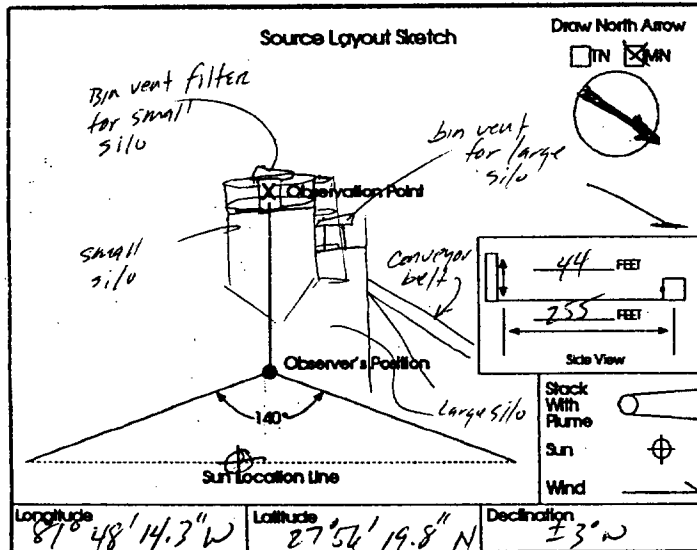 Source Layout Sketch
Draw North Arrow
TN MN
Bin vent filter
for small
silo
bin vent
for large
silo
X Observation Point
small
silo
Conveyor
belt
44 FEET
255 FEET
Side View
Observer's Position
140°
Large silo
Sun Location Line
Stack
With
Plume
Sun
Wind
Longitude
81° 48' 14.3" W
Latitude
27° 56' 19.8" N
Declination
±3° W